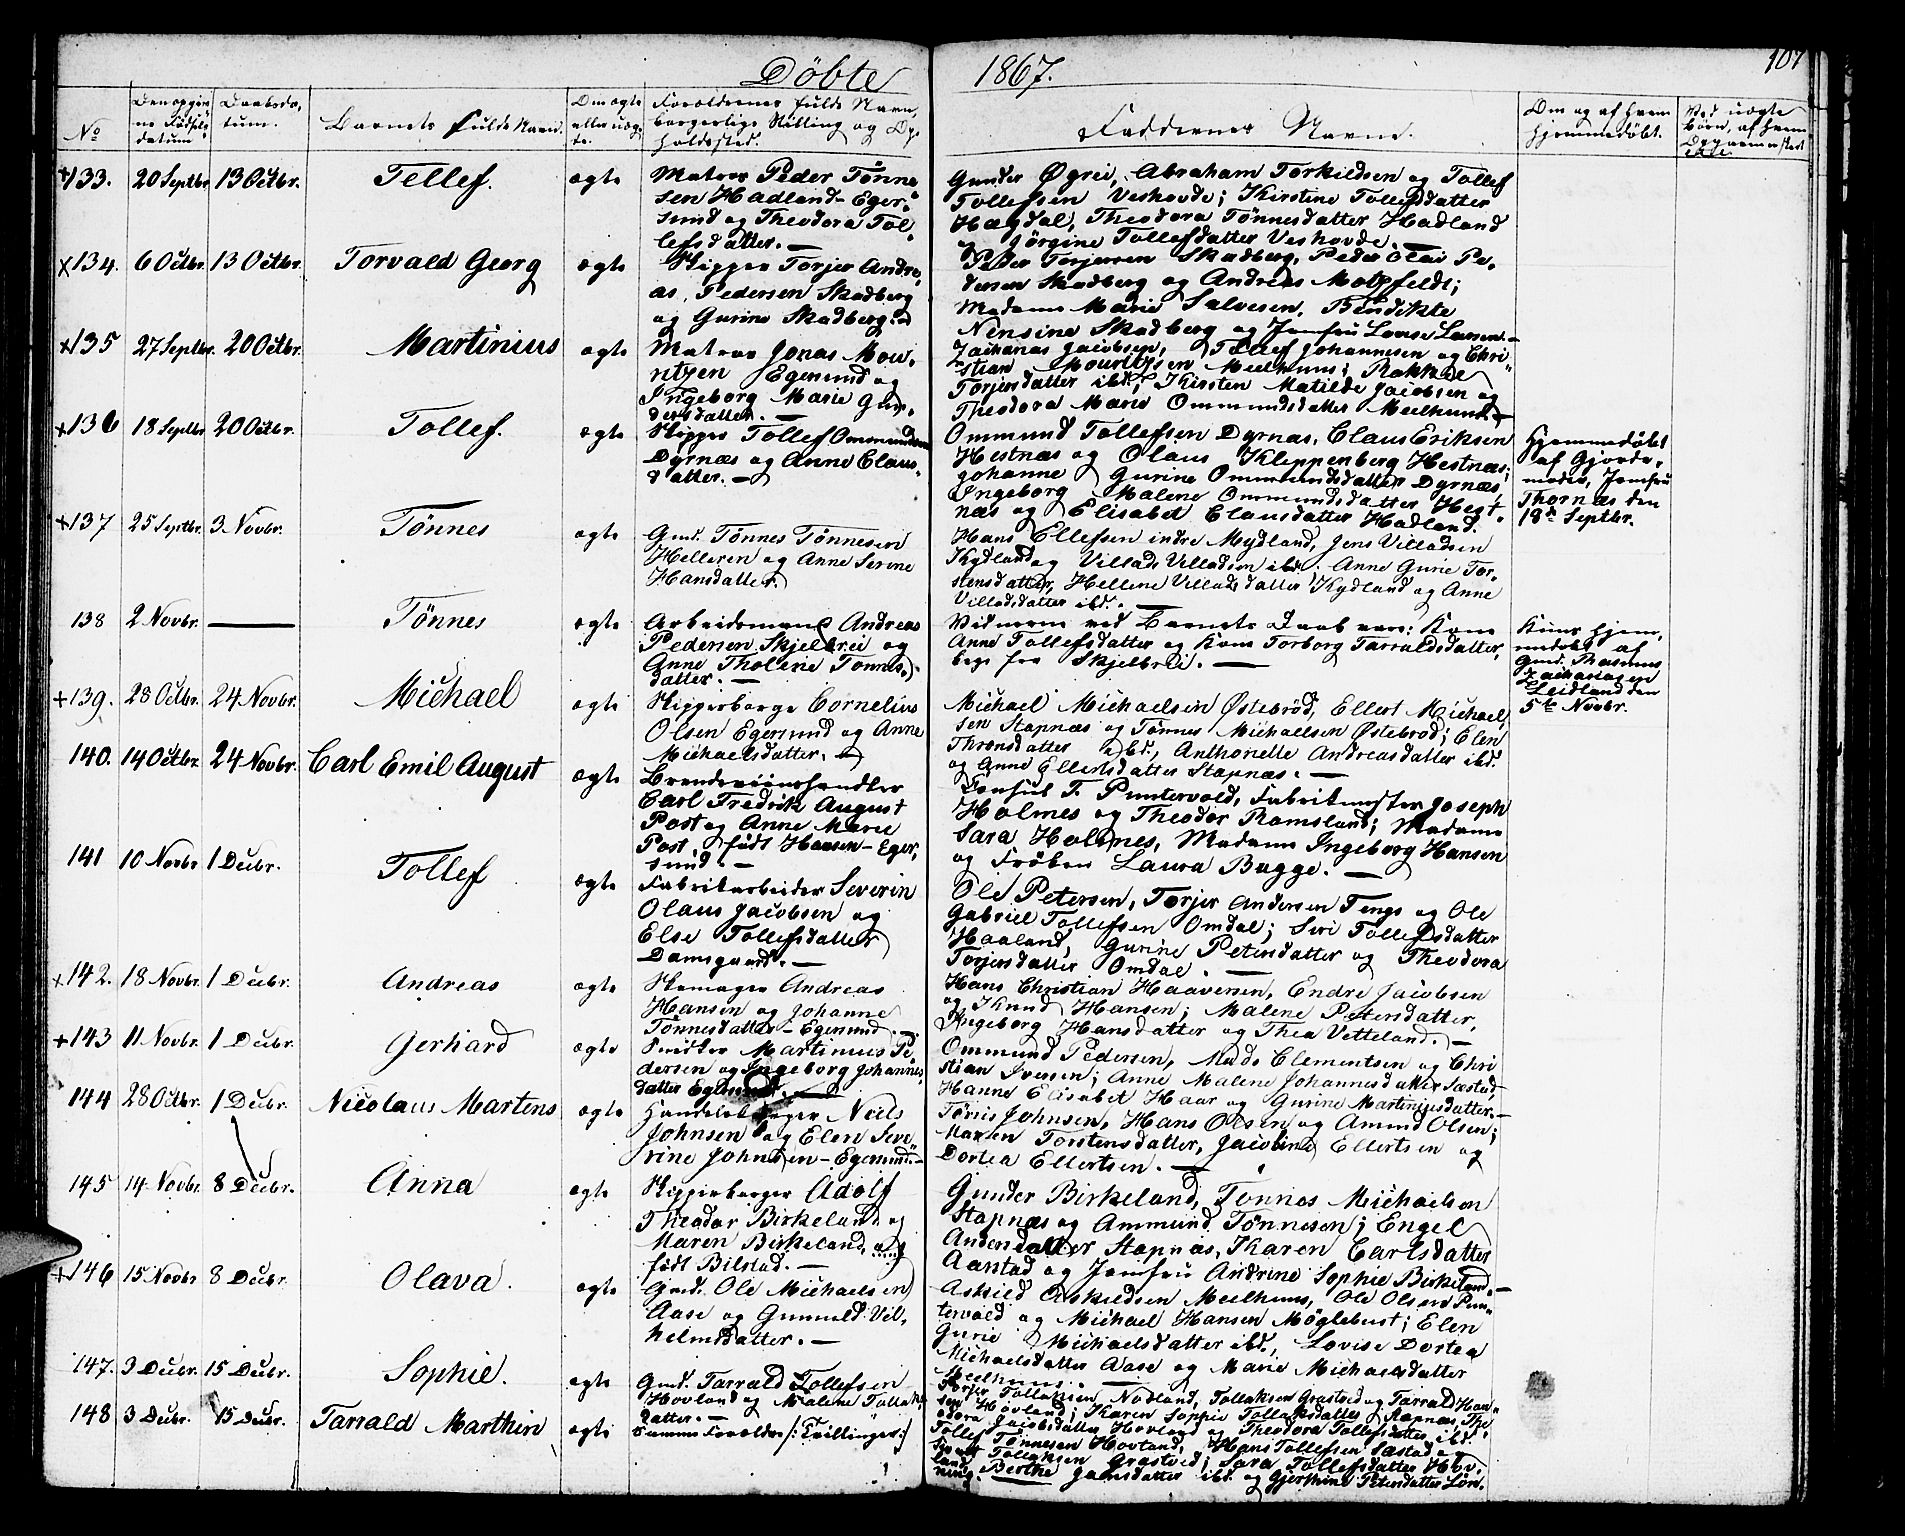 Döbte 1867. 107
No
Den opgiv
ne Födsels
datum
Daabsda,
tum.
Barnets fulde Navn.
Om ægte
eller uæg
te.
Forældrenes fulde Navn,
borgerlige Stilling og Op,
holdssted.
Faddernes Navne.
Om og af hvem
hjemmedöbt.
Ved uægte
börn, af hvem
133. 20 Septbr. 13 Octbr. Tellef. ægte
Matros Peder Tönne
sen Hadland - Eger,
sund og Theodora Tol,
lefsdatter. —
Gunder Øgrei, Abraham Torkildsen og Tollef
Tollefsen Veshovde; Kirstine Tollefsdatter
Hægdal, Theodora Tönnesdatter Hadland
og Jörgine Tollefsdatter Veshovde. —
x134. 6 Octbr. 13 Octbr. Torvald Georg ægte
Skipper Torjer Andre,
as Pedersen Skadberg
og Gurine Skadberg. —
Peder Torjersen Skadberg, Peder Olai Pe,
dersen Skadberg og Andreas Motzfeldt;
Madame Marie Salvesen, Bendikte
Nensine Skadberg og Jomfru Lovise Larsen. —
x135 27 Septbr. 20 Octbr. Martinius ægte
Matros Jonas Mou,
ritzen Egersund og
Ingeborg Marie Gun,
dersdatter. —
Zacharias Jacobsen, Tollef Johannesen og Chri,
stian Mouritzsen Meelhuus; Rakkel
Torjersdatter ibd., Kirsten Matilde Jacobsen og
Theodora Marie Ommundsdatter Meelhuus. —
x136 18 Septbr 20 Octbr. Tollef. ægte
Skipper Tollef Ommundsen
Dyrnæs og Anne Claus,
datter. —
Ommund Tollefsen Dyrnæs, Claus Eriksen
Hestnæs og Olaus Kleppenberg Hestnæs;
Johanne Gurine Ommundsdatter Dyrnæs,
Ingeborg Malene Ommundsdatter Hest,
næs og Elisabet Clausdatter Hadland.
Hjemmedöbt
af Gjorde,
moder, Jomfru
Thornæs den
18de Septbr.
+137 25 Septbr. 3 Novbr. Tönnes ægte
Gmd. Tönnes Tönnesen
Helleren og Anne Serine
Hansdatter.
Hans Ellefsen indre Mydland, Jens Villadsen
Kydland og Villads Villadsen ibd.; Anne Gurie Tor,
stensdatter, Hellene Villadsdatter Kydland og Anne
Villadsdatter ibd. —
138 2 Novbr. — Tönnes ægte
Arbeidsmand Andreas
Pedersen Skjelbrei og
Anne Tholene Tönnes,
datter. —
Vidnerne ved Barnets Daab vare: Kone
Anne Tollefsdatter og Kone Torborg Tarraldsdatter,
bege fra Skjelbrei. —
Kun hjem,
medöbt af
Gmd. Rasmus
Zachariasen
Leidland den
5te Novbr.
+139. 28 Octbr. 24 Novbr. Michael ægte
Skipperborger Cornelius
Olsen Egersund og Anne
Michaelsdatter. —
Michael Michaelsen Østebröd, Ellert Michael,
sen Stapnæs og Tönnes Michaelsen Østebröd; Elen
Thronsdatter ibd., Anthonette Andreasdatter ibd.
og Anne Ellertsdatter Stapnæs. —
140. 14 Octbr. 24 Novbr. Carl Emil August ægte
Brændeviinshandler
Carl Fredrik August
Post og Anne Marie
Post, födt Hansen - Eger,
sund. —
Consul T. Puntervold, Fabrikmester Joseph
Holmes og Theodor Ramsland; Madame
Sara Holmes, Madame Ingeborg Hansen
og Fröken Laura Bugge. —
141 10 Novbr 1 Decbr. Tollef ægte
Fabrikarbeider Severin
Olaus Jacobsen og
Else Tollefsdatter
Damsgaard. —
Ole Petersen, Torjer Andersen Tengs og Ole
Gabriel Tollefsen Omdal; Siri Tollefsdatter
Haaland, Gurine Petersdatter og Theodora
Torjersdatter Omdal. —
x142. 18 Novbr. 1 Decbr. Andreas ægte
Skomager Andreas
Hansen og Johanne
Tönnesdatter - Egersund. —
Hans Christian Haaversen, Endre Jacobsen
og Knud Hansen; Malene Petersdatter,
Ingeborg Hansdatter og Thea Vetteland. —
+143 11 Novbr. 1 Decbr. Gerhard ægte
Snidker Martinius Pe,
dersen og Ingeborg Johannes,
datter Egersund. —
Ommund Pedersen, Mads Clementsen og Chri
stian Iversen; Anne Malene Johannesdatter Sæstad,
Hanne Elisabet Haar og Gurine Martiniusdatter. —
144 28 Octbr. 1 Decbr. Nicolaus Martens ægte
Handelsborger Neils
Johnsen og Elen Seve,
rine Johnsen - Egersund. —
Tönnis Johnsen, Hans Olsen og Amund Olsen;
Maren Torstensdatter, Jacobine Ellertsen og
Dortea Ellertsen. —
145 14 Novbr. 8 Decbr. Anna ægte
Skipperborger Adolf
Theodor Birkeland og
Maren Birkeland,
födt Bilstad. —
Gunder Birkeland, Tönnes Michaelsen
Stapnæs og Ammund Tönnesen; Engel
Andersdatter Stapnæs, Karen Carlsdatter
Aarstad og Jomfru Andrine Sophie Birkeland. —
+146 15 Novbr 8 Decbr. Olava. ægte
Gmd. Ole Michaelsen
Aase og Gunnild Vil,
helmsdatter. —
Askild Askildsen Meelhuus, Ole Olsen Pun,
tervold og Michael Hansen Möglebust; Elen
Gurie Michaelsdatter ibd., Lovise Dortea
Michaelsdatter Aase og Marie Michaelsdatter
Meelhuus. —
147. 3 Decbr. 15 Decbr. Sophie. ægte
Gmd. Tarrald Tollefsen
Hovland og Malene Tollaks
datter. —
Torjer Tollaksen Nodland, Tollaksen Grastved og Tarrald Han,
sen Hovland; Karen Sophie Tollaksdatter Stapnæs, The
odora Jacobsdatter Hovland og Theodora Tollefsdatter ibd.
148 3 Decbr. 15 Decbr. Tarrald Marthin ægte
Samme Forældre /: Tvillinger :/
Tollef Tönnesen Hovland, Hans Tollefsen Sæstad og
Tollaksen Grastved; Sara Tollefsdatter Hov,
land, Berthe Jonasdatter ibd. og Gjertine Petersdatter Lön,
ning